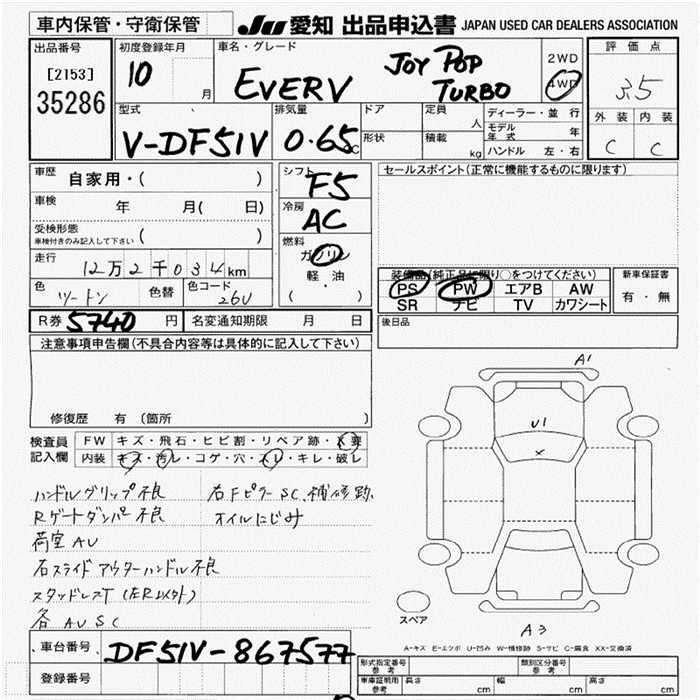 車内保管・守衛保管 JU 愛知 出品申込書 JAPAN USED CAR DEALERS ASSOCIATION
出品番号 初度登録年月 車名・グレード 評価点
[2153] 10 月 EVERY JOY POP TURBO 2WD 4WD 3.5
35286
型式 排気量 ドア 定員 人 ディーラー・並行 外装 内装
V-DF51V 0.65 C 形状 積載 kg モデル年式 年 C C
ハンドル 左・右
車歴 自家用・( ) シフト F5 セールスポイント(正常に機能するものに限ります)
車検 年 月( 日) 冷房 AC
受検形態 ( )
車検付きのみ記入して下さい
燃料 ガソリン
走行 12万2千034km 軽・油
( ・ )
装備品(純正品に限り○をつけてください) 新車保証書
色 ツートン 色替 色コード 26U
PS PW エアB AW 有・無
SR ナビ TV カワシート
R券 5740 円 名変通知期限 月 日 後日品
注意事項申告欄(不具合内容等は具体的に記入して下さい)
修復歴 有 (箇所
A1
U1
×
検査員 FW キズ・飛石・ヒビ割・リペア跡・X要
記入欄 内装 キズ・汚レ・コゲ・穴・スレ・キレ・破レ
ハンドルグリップ不良 右Fピラー SC、補修跡
Rゲートダンパー不良 オイルにじみ
荷室AU
右スライドアウターハンドル不良
スタッドレスT (左R以外)
各AUSC
スペア
A3
A-キズ E-エクボ U-凹み W-補修跡 S-サビ C-腐食 XX-交換済
車台番号 DF51V-867577
登録番号
形式指定番号 参考 類別区分番号 参考
車庫証明用 参考 長さ cm 幅 cm 高さ cm